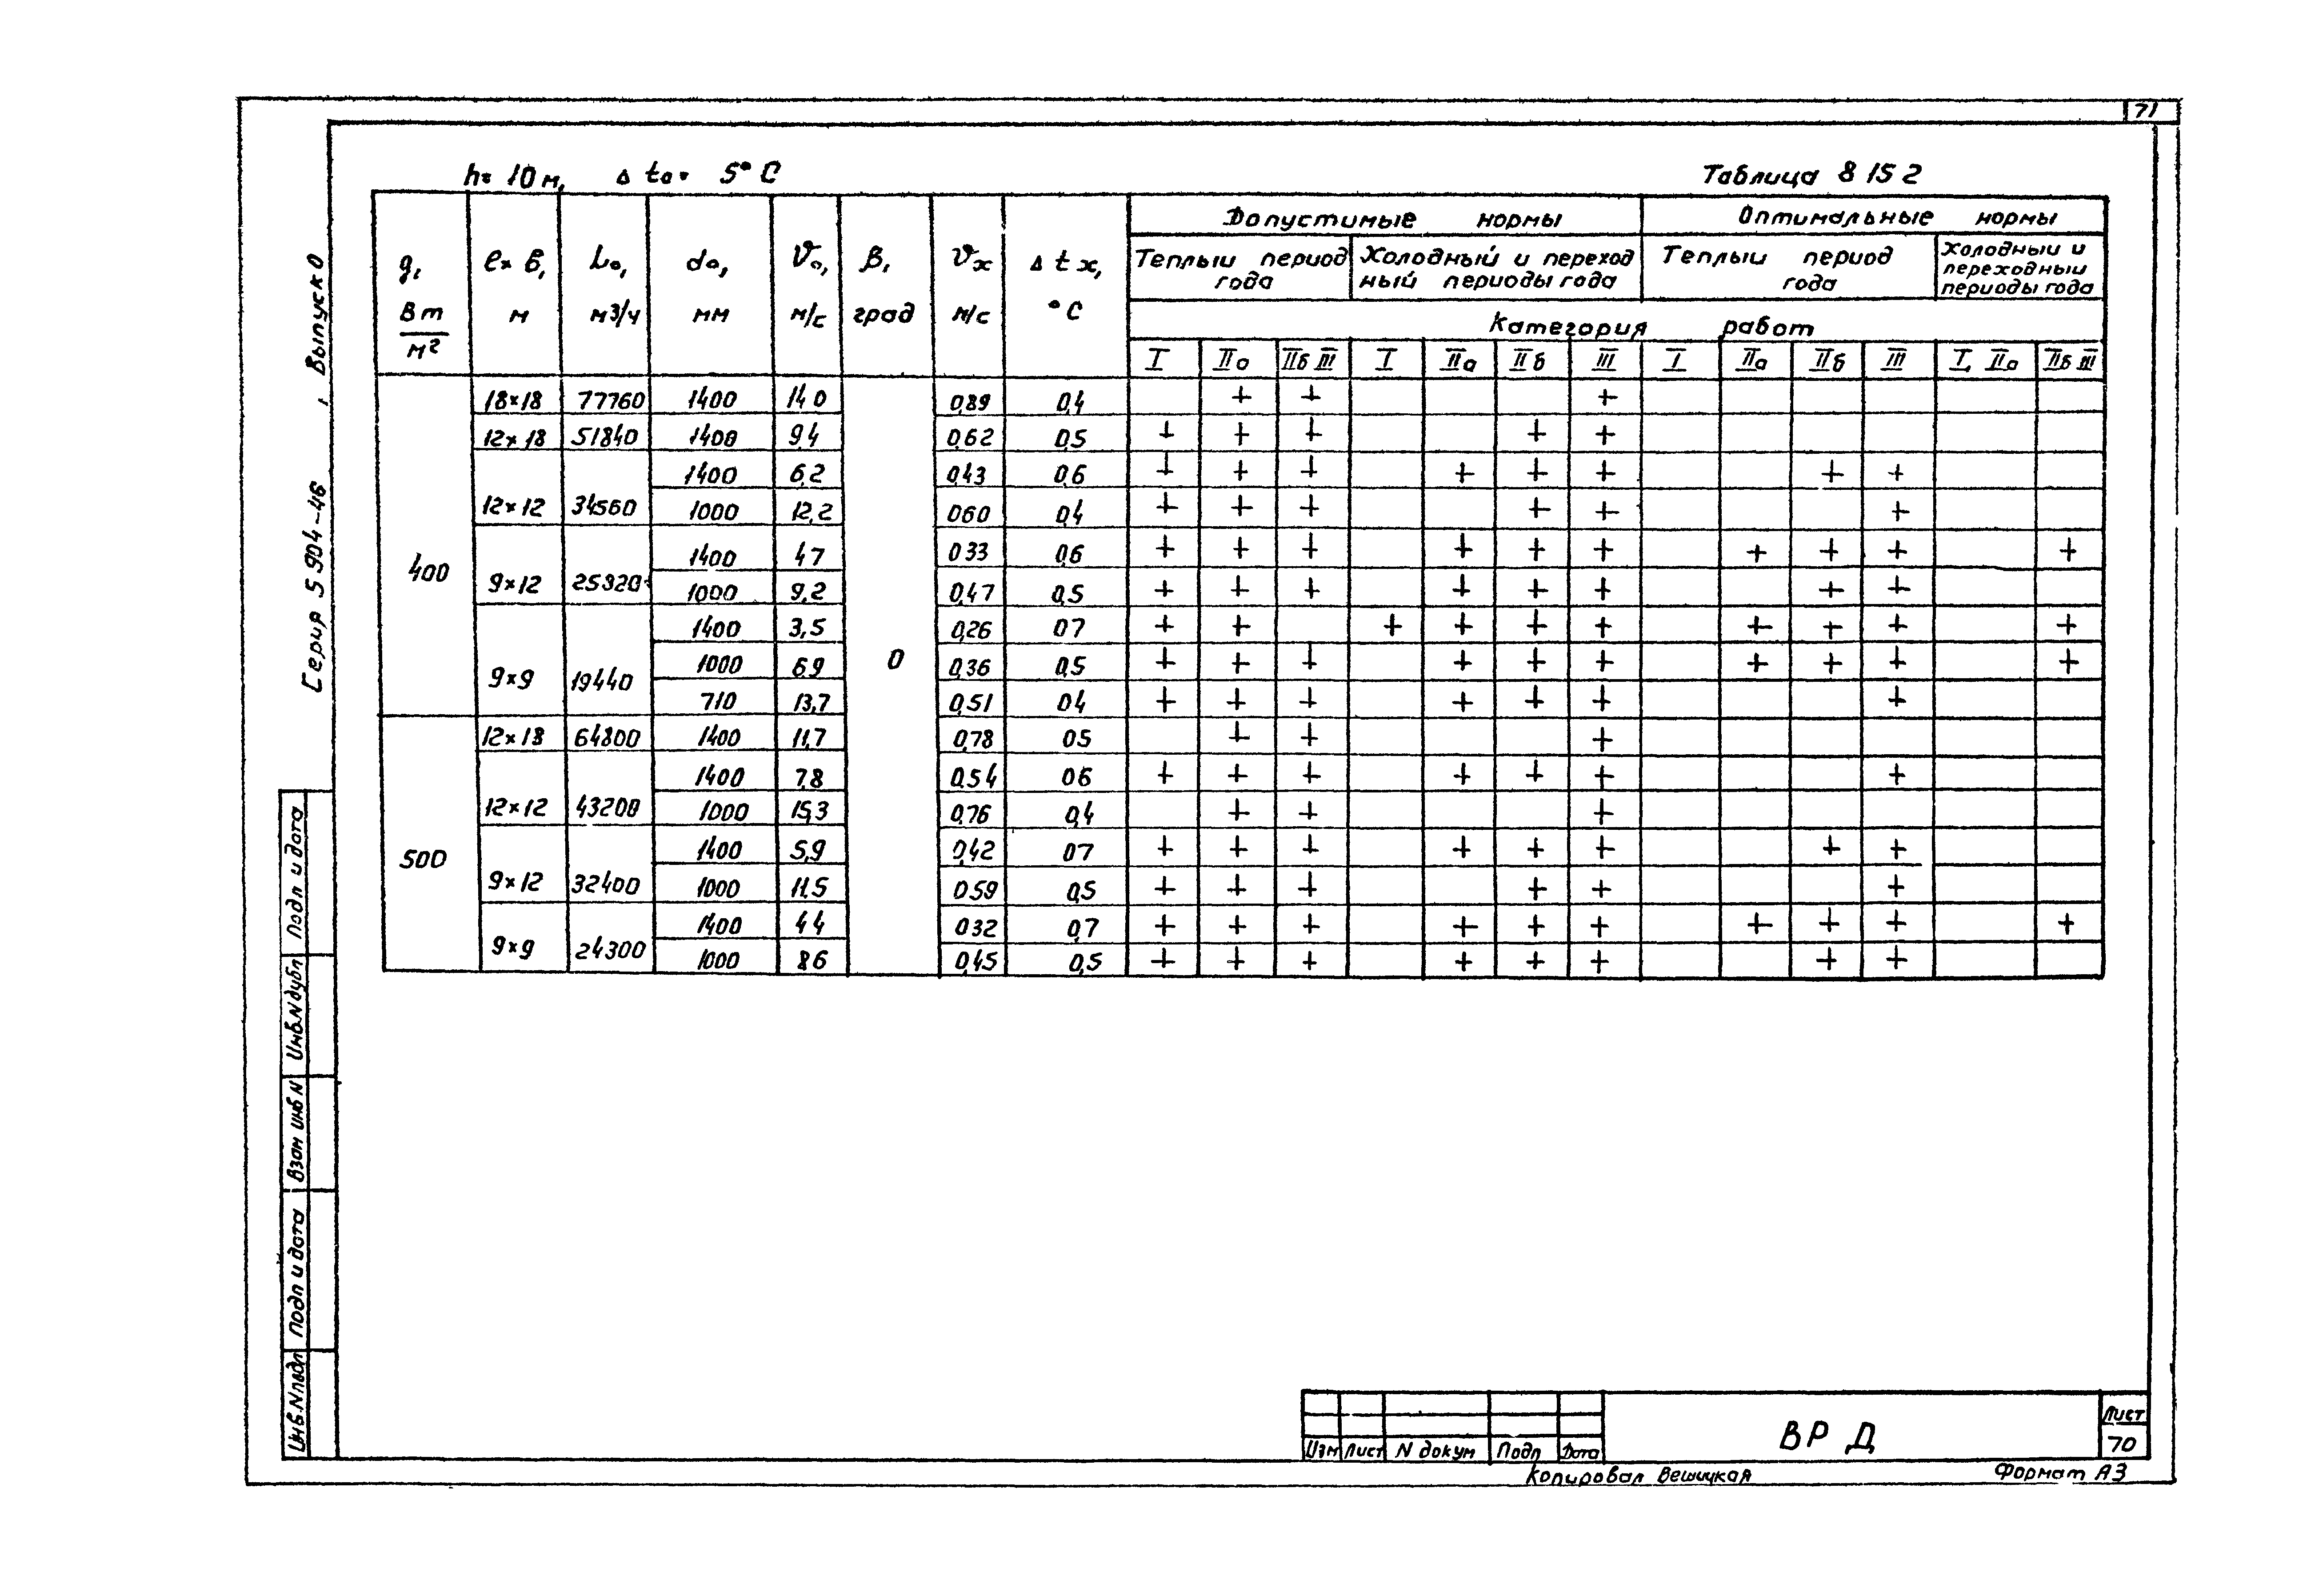 71
h= 10 м, Δ to= 5° C
Таблица 8 15 2
q, Вт/м² | ℓ× в, м | Lo, м3/ч | do, мм | Vo, м/с | β, град | Vx м/с | Δ tx, °C | Допустимые нормы | Оптимальные нормы
Теплый период года | Холодный и переходный периоды года | Теплый период года | Холодный и переходный периоды года
Категория работ
I | IIа | IIб III | I | IIа | IIб | III | I | IIа | IIб | III | I, IIа | IIб III
400 | 18×18 | 77760 | 1400 | 14 0 | 0 | 0,89 | 0,4 | | + | + | | | | + | | | | | |
12×18 | 51840 | 1400 | 9,4 | 0,62 | 0,5 | + | + | + | | | + | + | | | | | |
12×12 | 34560 | 1400 | 6,2 | 0,43 | 0,6 | + | + | + | | + | + | + | | | + | + | |
1000 | 12,2 | 060 | 0,4 | + | + | + | | | + | + | | | | + | |
9×12 | 25920 | 1400 | 4 7 | 0 33 | 0,6 | + | + | + | | + | + | + | | + | + | + | | +
1000 | 9,2 | 0,47 | 0,5 | + | + | + | | + | + | + | | | + | + | |
9×9 | 19440 | 1400 | 3,5 | 0,26 | 07 | + | + | | + | + | + | + | | + | + | + | | +
1000 | 6,9 | 0,36 | 0,5 | + | + | + | | + | + | + | | + | + | + | | +
710 | 13,7 | 0,51 | 0 4 | + | + | + | | + | + | + | | | | + | |
500 | 12×18 | 64800 | 1400 | 11,7 | 0,78 | 0 5 | | + | + | | | | + | | | | | |
12×12 | 43200 | 1400 | 7,8 | 0,54 | 0 6 | + | + | + | | + | + | + | | | | + | |
1000 | 15,3 | 0,76 | 0,4 | | + | + | | | | + | | | | | |
9×12 | 32400 | 1400 | 5,9 | 0,42 | 0 7 | + | + | + | | + | + | + | | | + | + | |
1000 | 11,5 | 0,59 | 0,5 | + | + | + | | | + | + | | | | + | |
9×9 | 24300 | 1400 | 4 4 | 0 32 | 0,7 | + | + | + | | + | + | + | | + | + | + | | +
1000 | 8 6 | 0,45 | 0,5 | + | + | + | | + | + | + | | | + | + | |
Серия 5 904-46 , Выпуск 0
Инв.N подл Подп и дата Взам инв N Инв.N дубл Подп и дата
Изм Лист N докум Подп Дата
ВР Д
Лист
70
Копировал Вешицкая Формат А3